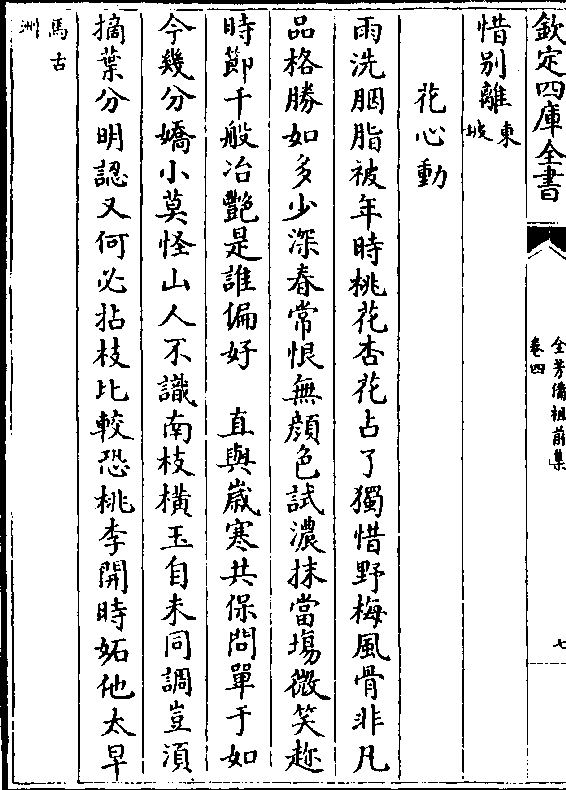 欽定四庫全書
全芳備祖前集
卷四
七
惜别離東坡
花心動
雨洗胭脂被年時桃花杏花占了獨惜野梅風骨非凡
品格勝如多少深春常恨無顔色試濃抹當塲微笑趂
時節千般冶豔是誰偏好　直與嵗寒共保問單于如
今幾分嬌小莫怪山人不識南枝横玉自来同調豈須
摘葉分明認又何必拈枝比較恐桃李開時妬他太早
馬古洲